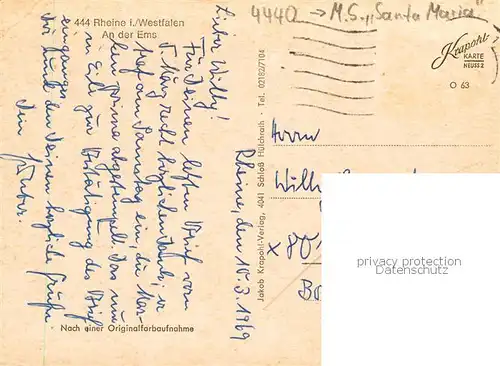 444 Rheine i./Westfalen
An der Ems
4440 → M.S. „Santa Maria"
Krapohl
KARTE
NEUSS 2
O 63
Lieber Willy!
Für Deinen letzten Brief vom
5. März recht herzlichen Dank, er
traf am Samstag ein, die Mar-
ken prima abgestempelt. Das nur
in Eile zur Bestätigung des Brief
einganges
Dir und den Deinen herzliche Grüße
Dein Günter.
Rheine, den 10.3.1969
Jakob Krapohl-Verlag, 4041 Schloß Hülchrath · Tel. 02182/7104
Herrn
Nach einer Originalfarbaufnahme
privacy protection
Datenschutz